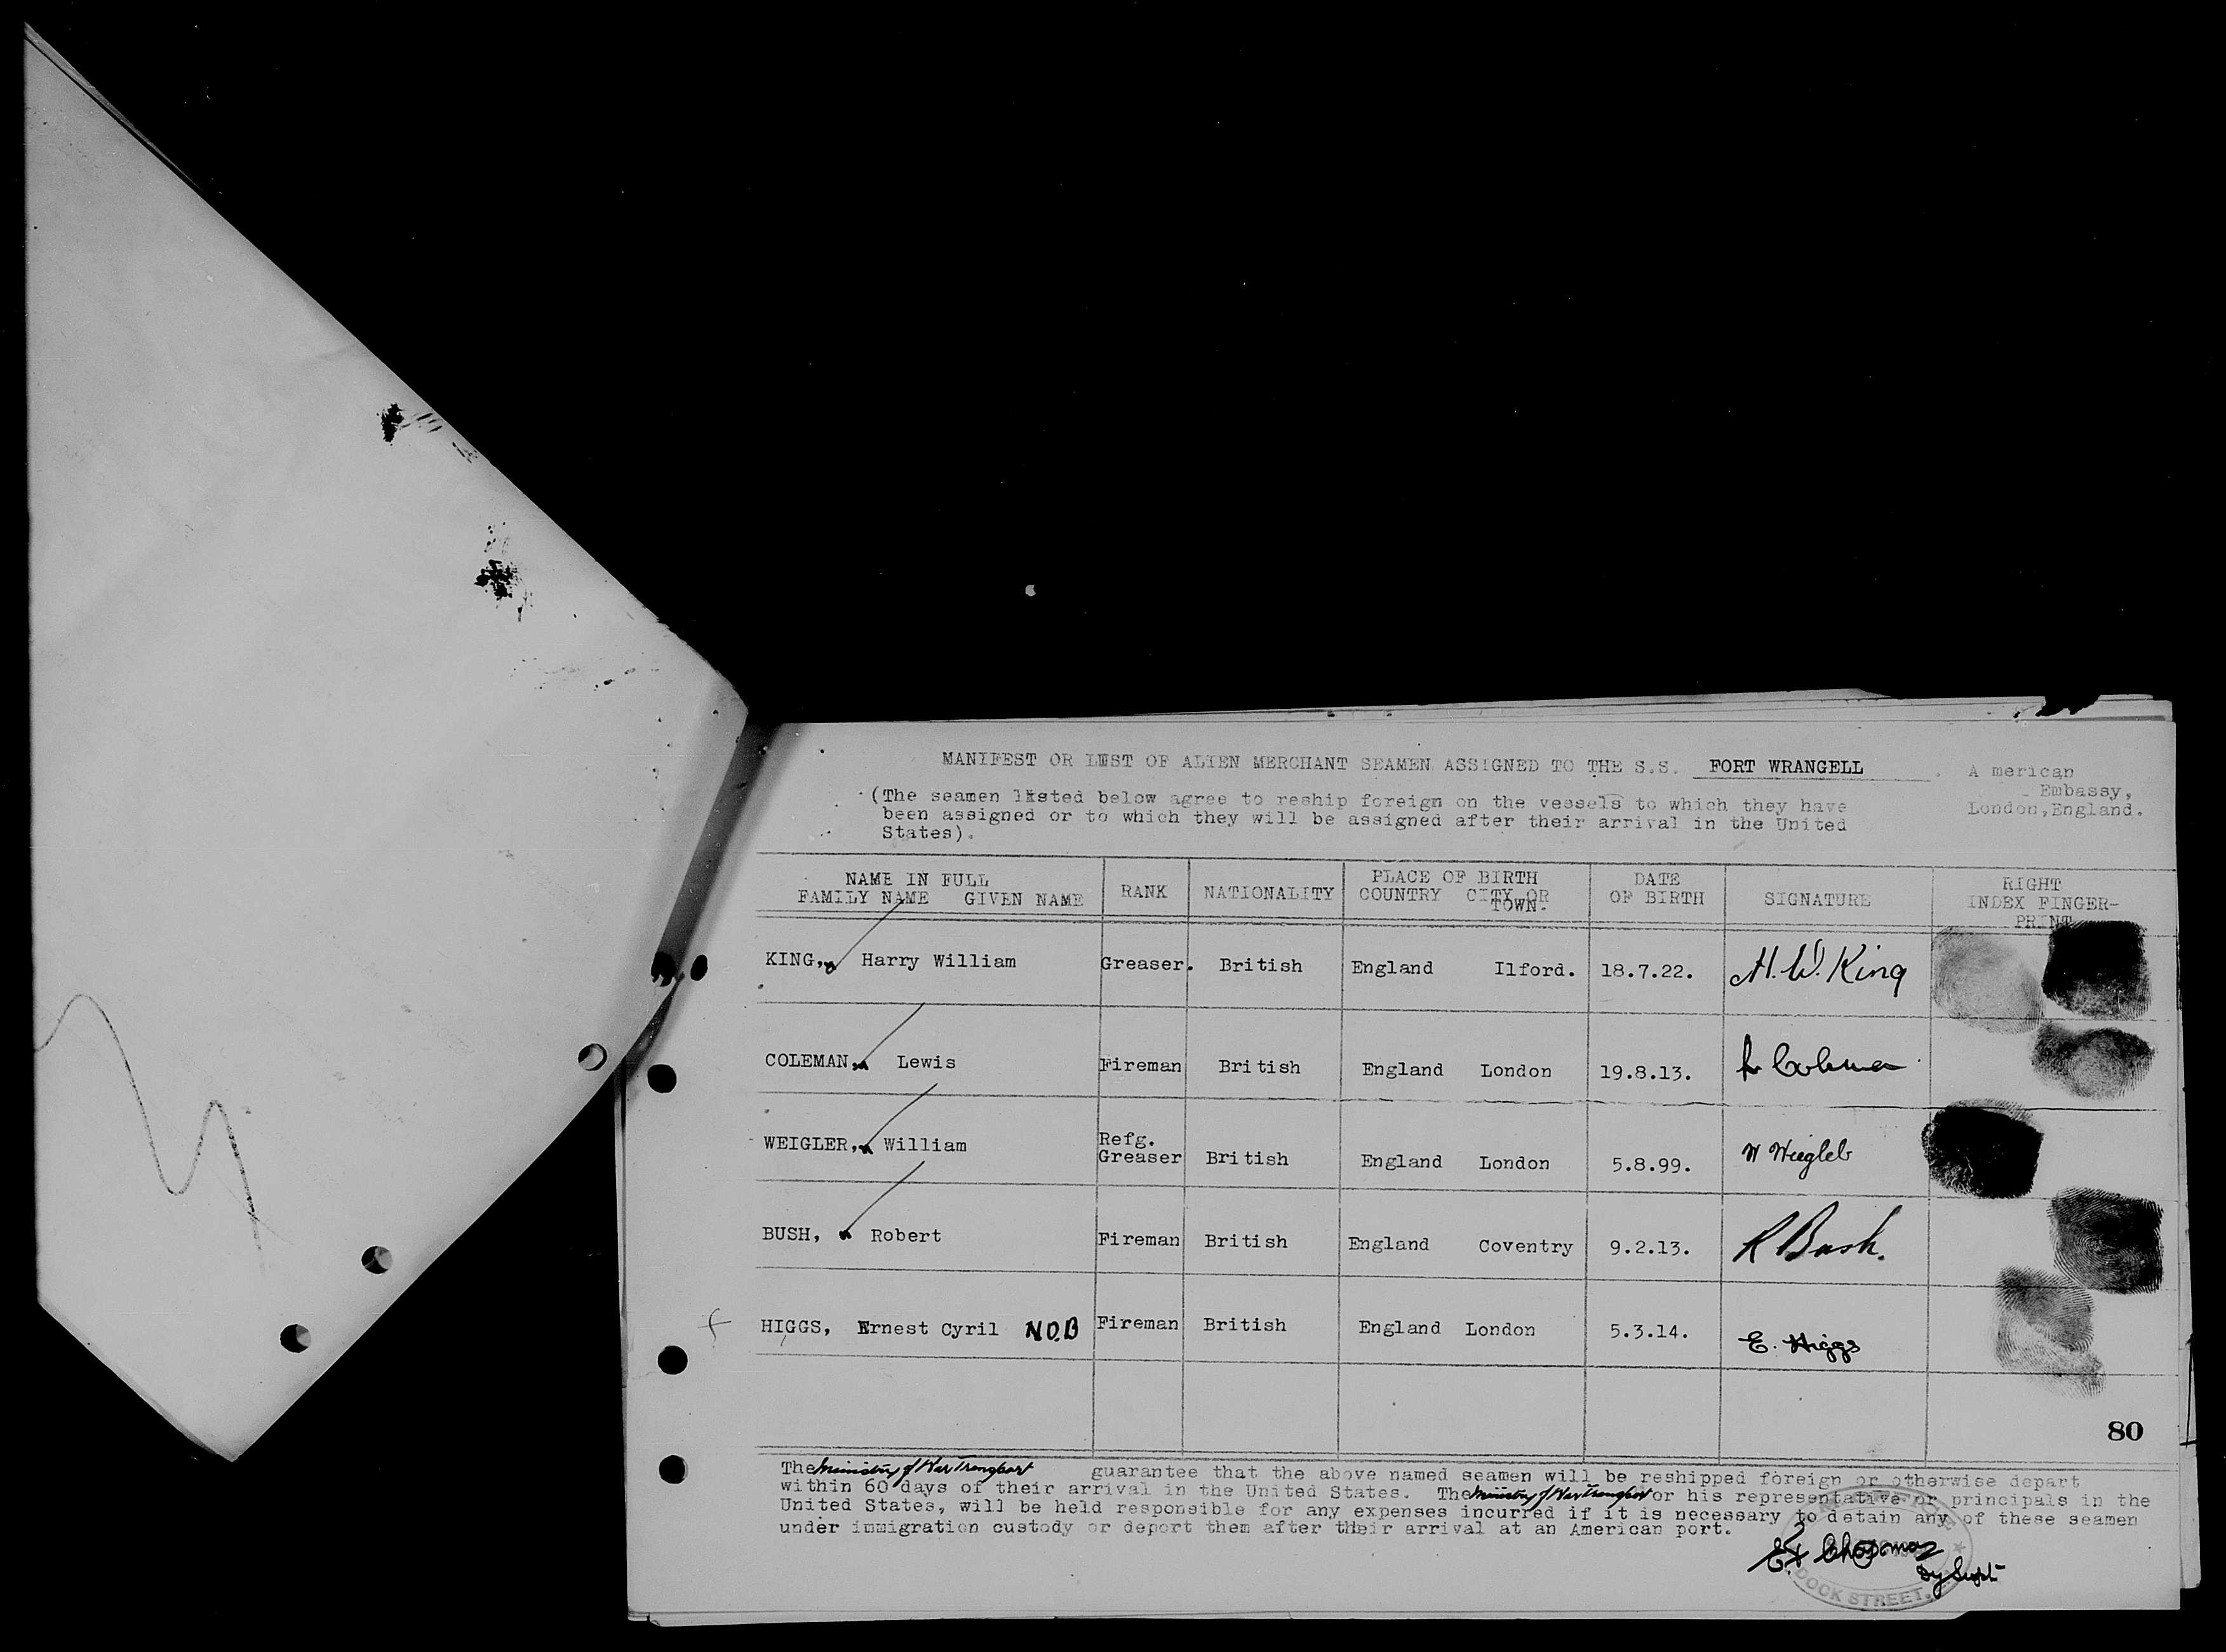 MANIFEST OR LIST OF ALIEN MERCHANT SEAMEN ASSIGNED TO THE S.S. FORT WRANGELL. A merican
Embassy,
London,England.
(The seamen listed below agree to reship foreign on the vessels to which they have
been assigned or to which they will be assigned after their arrival in the United
States).
NAME IN FULL
FAMILY NAME GIVEN NAME
RANK
NATIONALITY
PLACE OF BIRTH
COUNTRY CITY OR
TOWN.
DATE
OF BIRTH
SIGNATURE
RIGHT
INDEX FINGER-
PRINT
KING, Harry William Greaser. British England Ilford. 18.7.22. H.W. King
COLEMAN, Lewis Fireman British England London 19.8.13. L Coleman
WEIGLER, William Refg.
Greaser British England London 5.8.99. W Wiegleb
BUSH, Robert Fireman British England Coventry 9.2.13. R Bush.
HIGGS, Ernest Cyril N.O.B Fireman British England London 5.3.14. E. Higgs
80
The Ministry of War Transport guarantee that the above named seamen will be reshipped foreign or otherwise depart
within 60 days of their arrival in the United States. The Ministry of War Transport or his representative or principals in the
United States, will be held responsible for any expenses incurred if it is necessary to detain any of these seamen
under immigration custody or deport them after their arrival at an American port.
Chapman
Dy Supt
DOCK STREET.